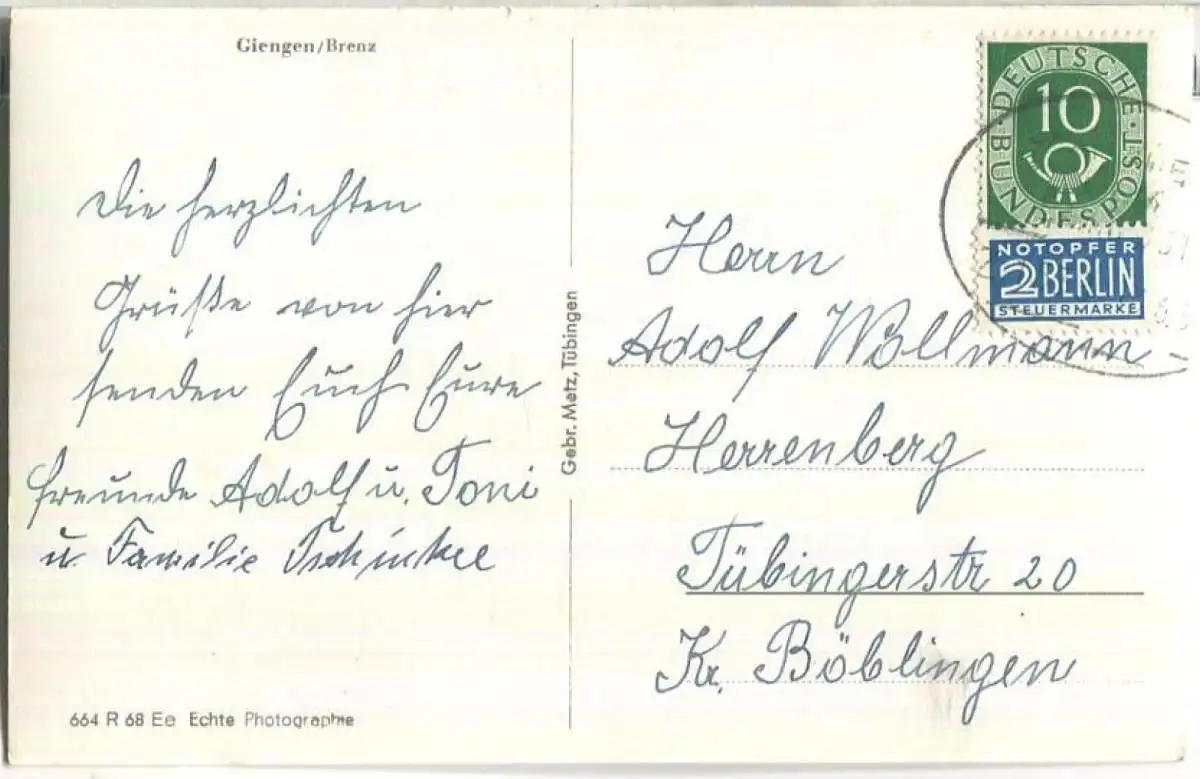 Giengen/Brenz
Die herzlichten
Grüße von hier
senden Euch Eure
Freunde Adolf u. Toni
u. Familie
664 R 68 Ee Echte Photographie
Gebr. Metz, Tübingen
DEUTSCHE BUNDESPOST
10
NOTOPFER
2 BERLIN
STEUERMARKE
Herrn
Adolf Wollmann
Herrenberg
Tübingerstr 20
Kr. Böblingen